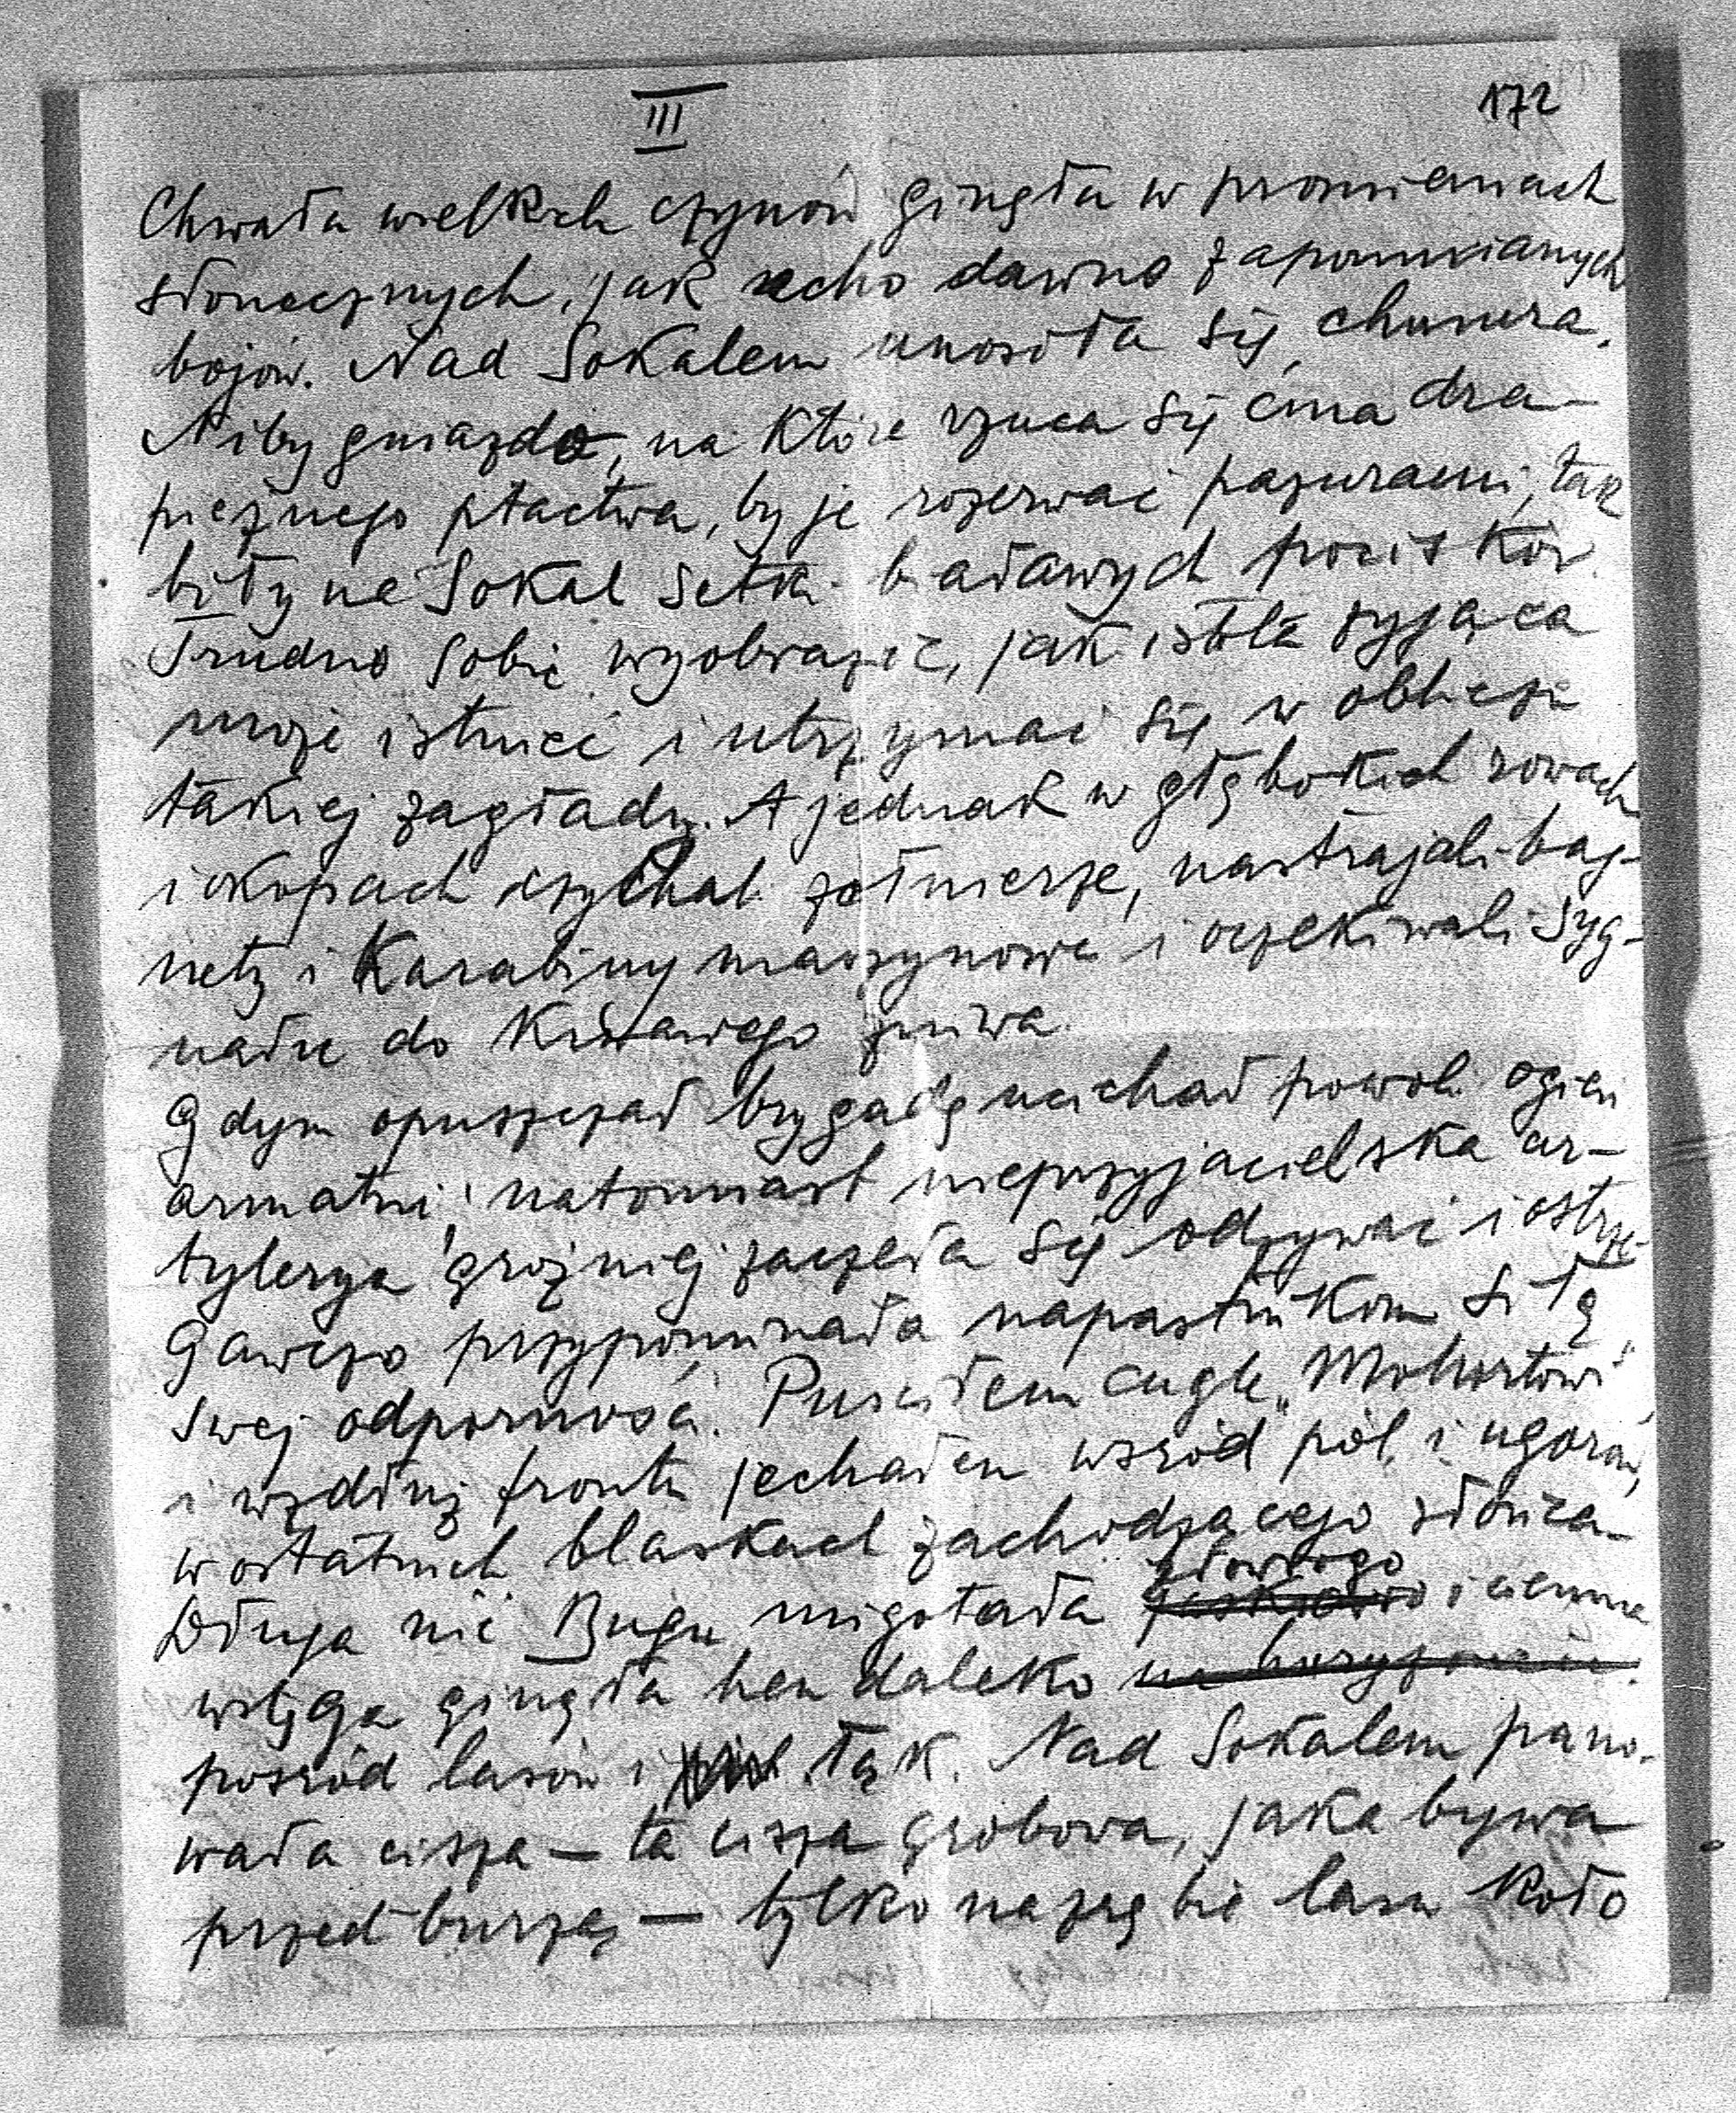 III
172
Chwała wielkich czynów ginęła w promieniach
słonecznych, jak echo dawno zapomnianych
bojów. Nad Sokalem unosiła się chmura.
Niby gniazdo, na które rzuca się ćma dra-
pieżnego ptactwa, by je rozerwać pazurami, tak
biły na Sokal setki białawych pocisków.
Trudno sobie wyobrazić, jak istota żyjąca
może istnieć i utrzymać się w obliczu
takiej zagłady. A jednak w głębokich rowach
i okopach czyhali żołnierze, nastrajali bag-
nety i karabiny maszynowe i oczekiwali syg-
nału do krwawego żniwa.
Gdym opuszczał brygadę ucichał powoli ogień
armatni, natomiast nieprzyjacielska ar-
tylerya groźniej zaczęła się odzywać i ostrze-
gawczo przypominała napastnikom siłę
swej odporności. Puściłem cugle „Mohortowi"
i wzdłuż frontu jechałem wśród pól i ugorów,
w ostatnich blaskach zachodzącego słońca.
Długa nić Bugu migotała złowrogo i ciemna
wstęga ginęła hen daleko na horyzoncie.
pośród lasów i łąk. Nad Sokalem pano-
wała cisza — ta cisza grobowa, jaka bywa
przed burzą — tylko na zrębie lasu koło